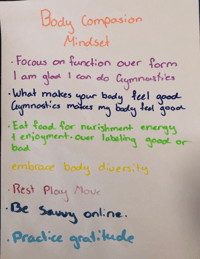 Body Compasion
Mindset
· Focous on function over form
I am glad I can do Gymnastics
· What makes your body feel good
Gymnastics makes my body feel good
· Eat food for nurishment energy
& enjoyment over labeling good or
bad
embrace body diversity
· Rest Play Move
· Be Savvy online.
· Practice gratitude